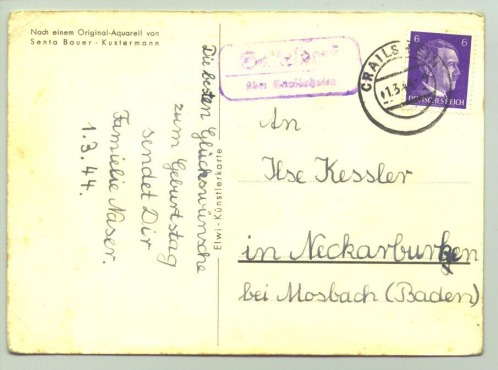 Nach einem Original-Aquarell von
Senta Bauer - Kustermann
Die besten Glückswünsche
zum Geburtstag
sendet Dir
Familie Naser.
1.3.44.
Elwi-Künstlerkarte
über Crailsheim
CRAILS
6 6
DEUTSCHES REICH
An
Ilse Kessler
in Neckarburken
bei Mosbach (Baden)